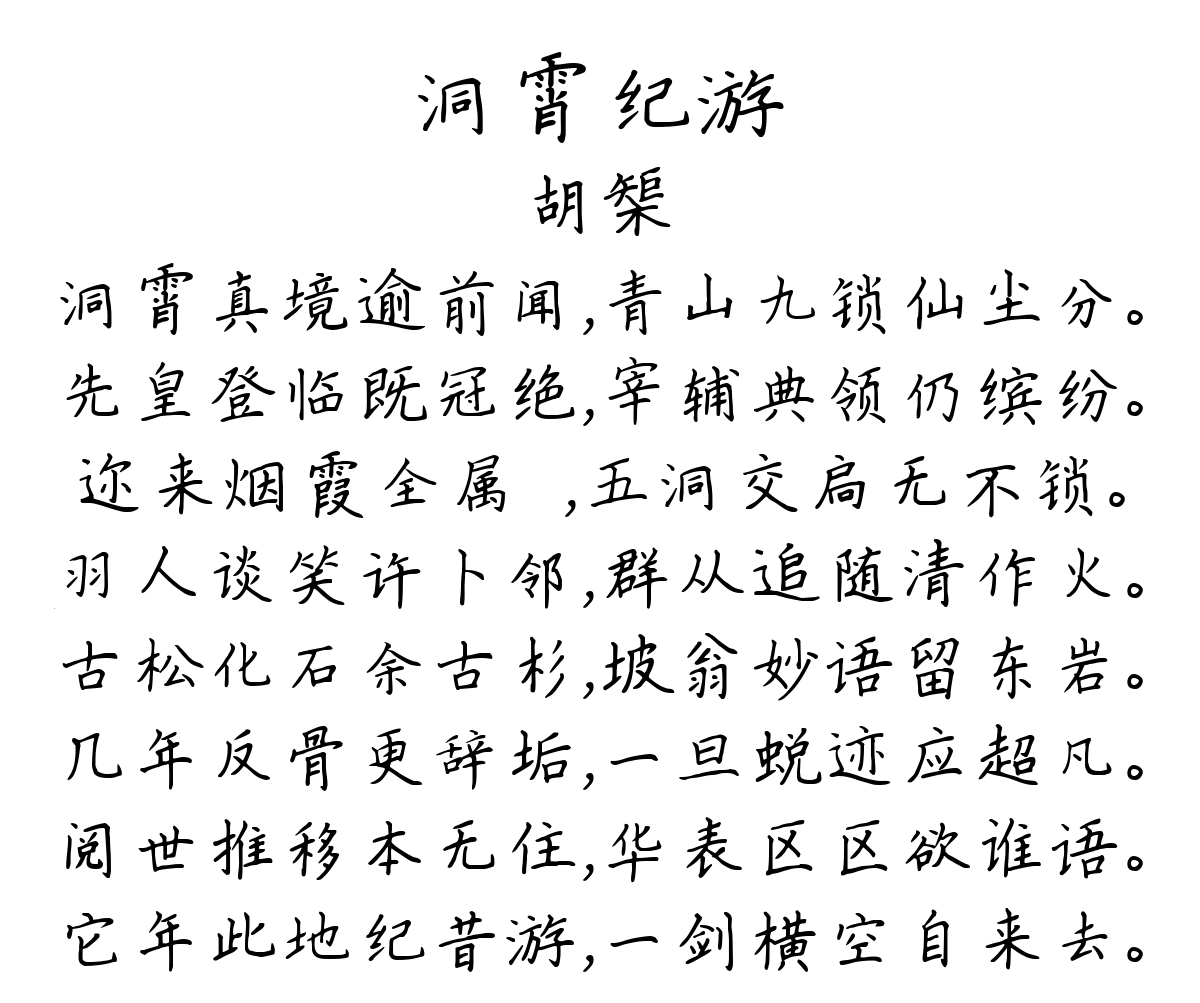 洞霄纪游
胡榘
洞霄真境逾前闻,青山九锁仙尘分。
先皇登临既冠绝,宰辅典领仍缤纷。
迩来烟霞全属 ,五洞交扃无不锁。
羽人谈笑许卜邻,群从追随清作火。
古松化石余古杉,坡翁妙语留东岩。
几年反骨更辞垢,一旦蜕迹应超凡。
阅世推移本无住,华表区区欲谁语。
它年此地纪昔游,一剑横空自来去。